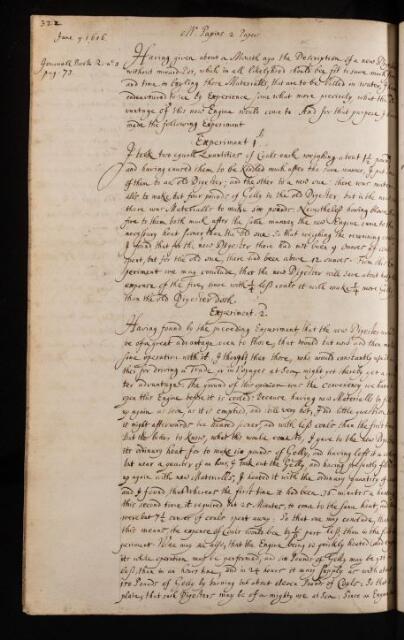 322
June 9 1686
Mr Papins 2 Paper
Journall Book
pag: 73
Having given about a Month ago the Description of a new
without
and time in boyling those Materialls, that are to be boiled in water, I
endeavoured to see by Experience, some what more precisely what the
vantage of this new Engine would come to And for this purpose I
made the following Experiment
Experiment 1
I took two equall Quantities of Coals each weighing about 1½ pound
and having caused them to be Kindled much after the same manner, I put one
of them to an old Digester; and the other to a new one: there was materi
alls to make but four pounds of Gelly in the old Digester but in the new
there was Materialls to make six pounds. Neverthelesse having blown
fire to them both much after the same manner the new Engine came to the
necessary heat sooner than the old one. So that weighing the remaining coals
I found that for the new Digester there had not been 9 ounces of coals
spent, but for the old one, there had been above 12 ounces. From this
periment we may conclude, that the new Digester will save about half the
expence of the fire, since with ¼ less coals it will make ¼ more Gelly
than the old Digester doth.
Experiment 2
Having found by the preceding Experiment that the new Digester would
be of great advantage even to those, that would but now and then make
some operation with it, I thought that those, who would constantly
their for driving a Trade, or in Voyages at Sea, might yet thereby get a
ter advantage. The ground of this opinion was the conveniency we have
open this Engine before it is cooled: because having new Materialls to
up again as soon as it is emptied, and still very hot, I did little question
it might afterwards be heated sooner, and with less coals than the first
but the better to know, what this would come to, I gave to the new
its ordinary heat for to make six pounds of Gelly, and having left it
but near a quarter of an hour, I took out the Gelly and having presently filled
up again with new Materialls, I heated it with the ordinary Quantity of
and I found, that whereas the first time it had been 36 minutes a
this second time it required but 25 Minutes, to come to the same heat, and
were but 7½ ounces of coals spent away: So that one may conclude, that
this means the expence of Coals would be part less, than in the first
periment. We may see also, that the Engine being so quickly heated
its whole operation may be performed, and six Pounds of Gelly may be
less than in an hours time, and in 24 hours it may supply us with about
150 Pounds of Gelly by burning but about eleven Pounds of Coals. So that
plain, that such Digesters may be of a mighty use at Sea: Since an Engine